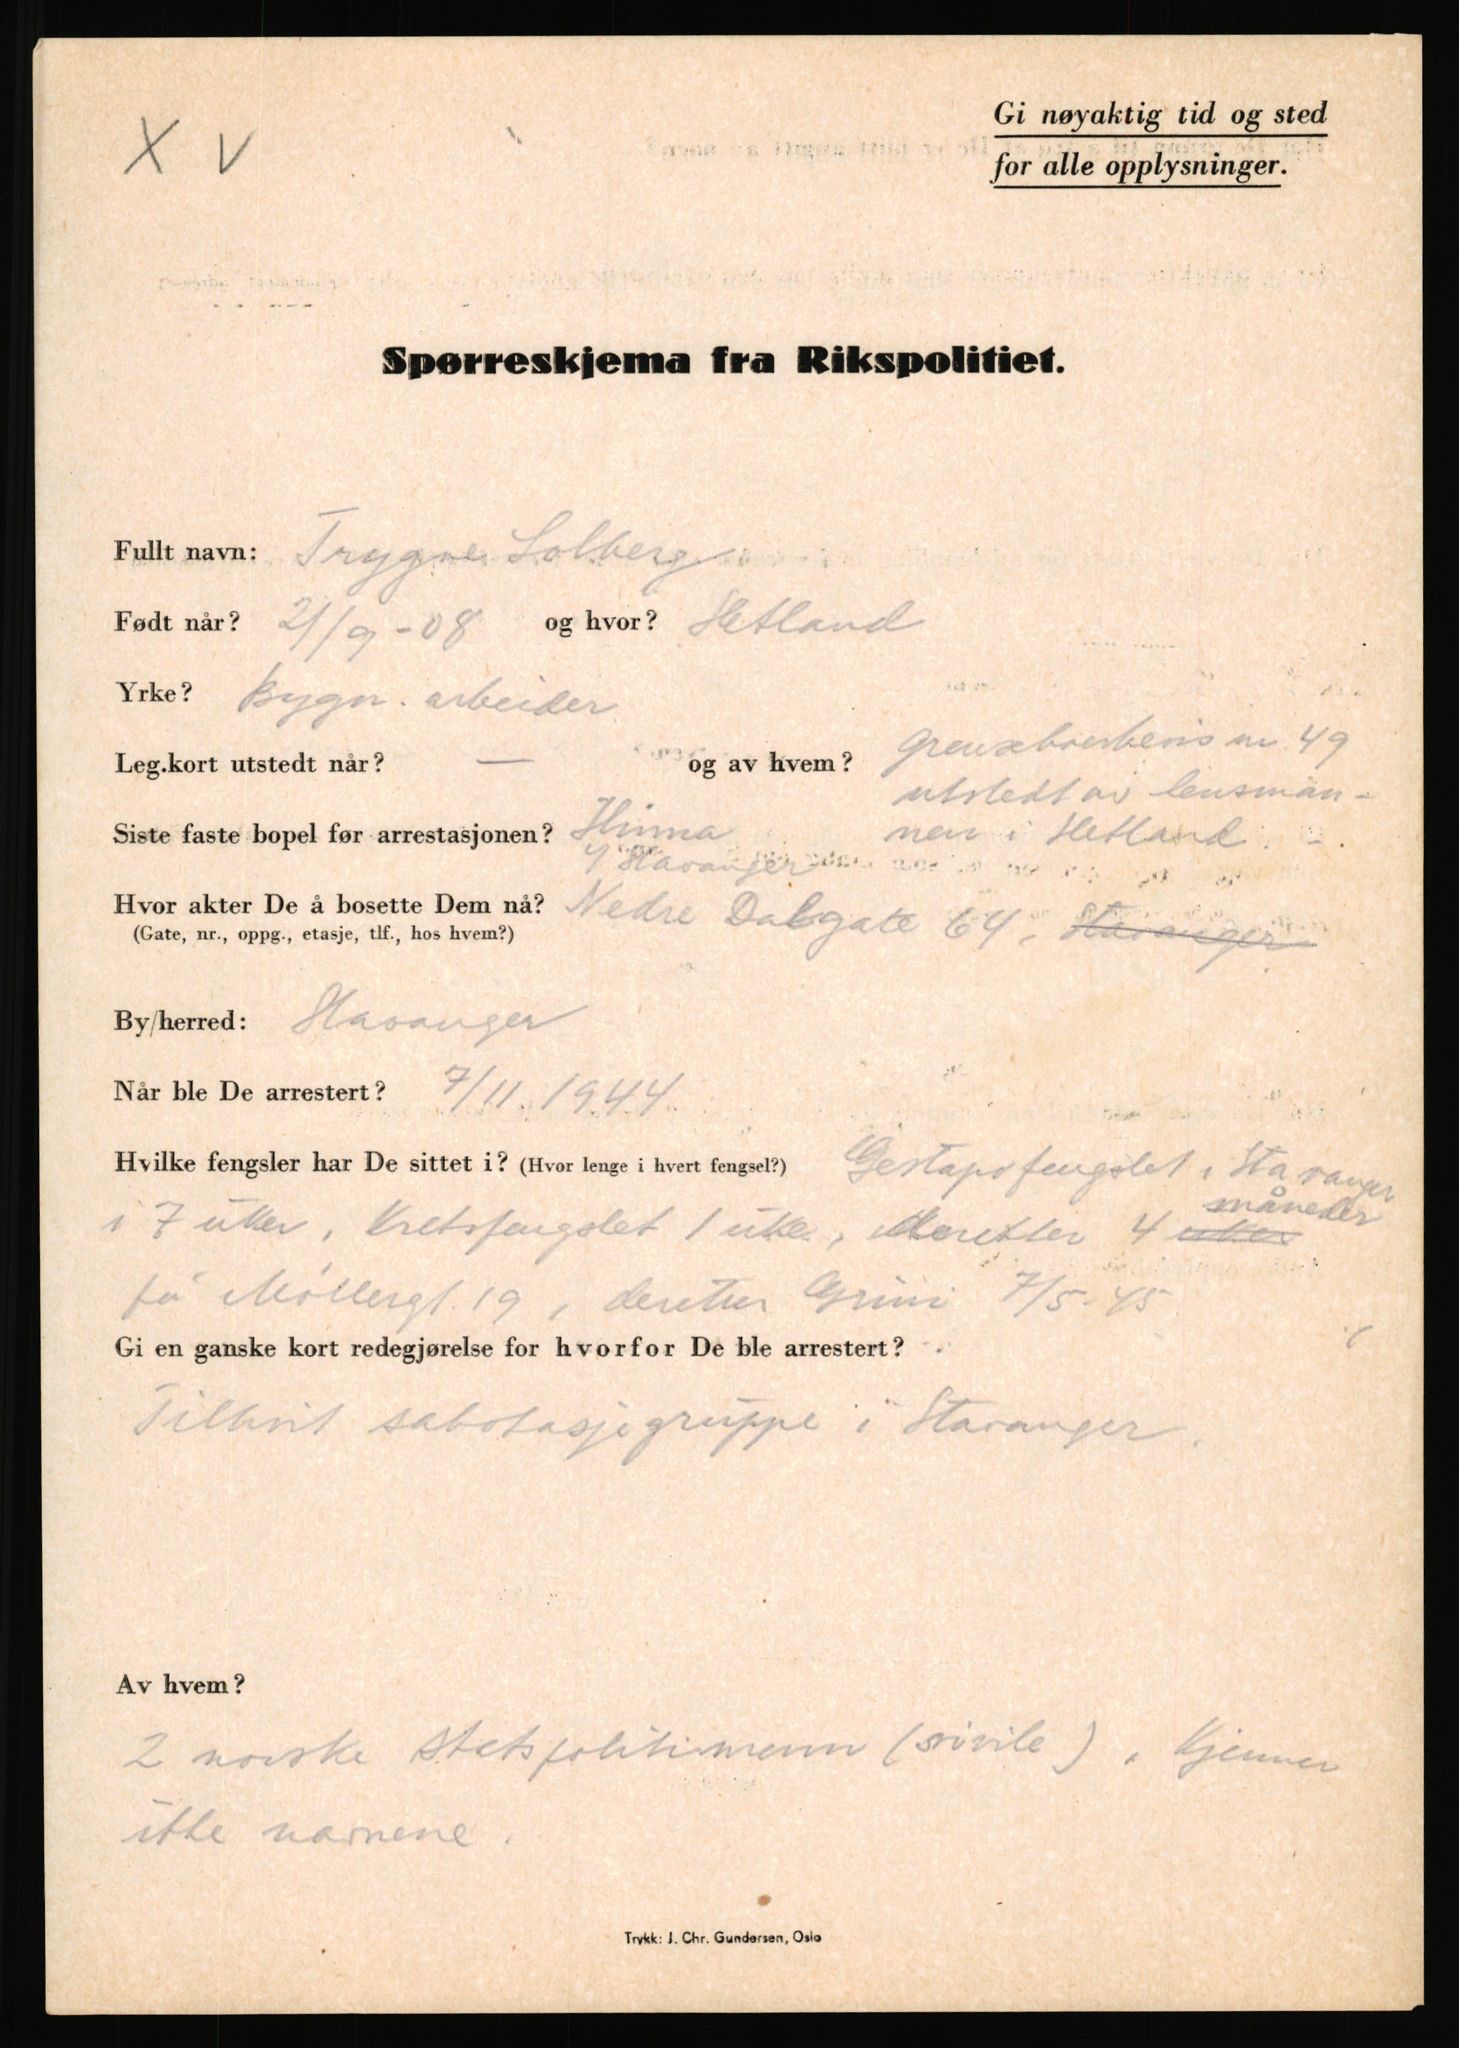 X V
Gi nøyaktig tid og sted
for alle opplysninger.
Spørreskjema fra Rikspolitiet.
Fullt navn: Trygve Solberg
Født når? 21/9-08 og hvor? Hetland
Yrke? Bygn. arbeider
Leg.kort utstedt når? — og av hvem? nr 49
utstedt av lensman-
Siste faste bopel før arrestasjonen? Hinna nen i Hetland.
Stavanger
Hvor akter De å bosette Dem nå? Nedre Dalgate 64, Stavanger
(Gate, nr., oppg., etasje, tlf., hos hvem?)
By/herred: Stavanger
Når ble De arrestert? 7/11. 1944
Hvilke fengsler har De sittet i? (Hvor lenge i hvert fengsel?) Gestapofengslet i Stavanger
måneder
i 7 uker, Kretsfengslet 1 uke, deretter 4 uker
på Møllergt. 19, deretter Grini 7/5-45
Gi en ganske kort redegjørelse for hvorfor De ble arrestert?
sabotasjegruppe i Stavanger.
Av hvem?
2 norske statspolitimenn (sivile). Kjenner
ikke navnene.
Trykk: J. Chr. Gundersen, Oslo